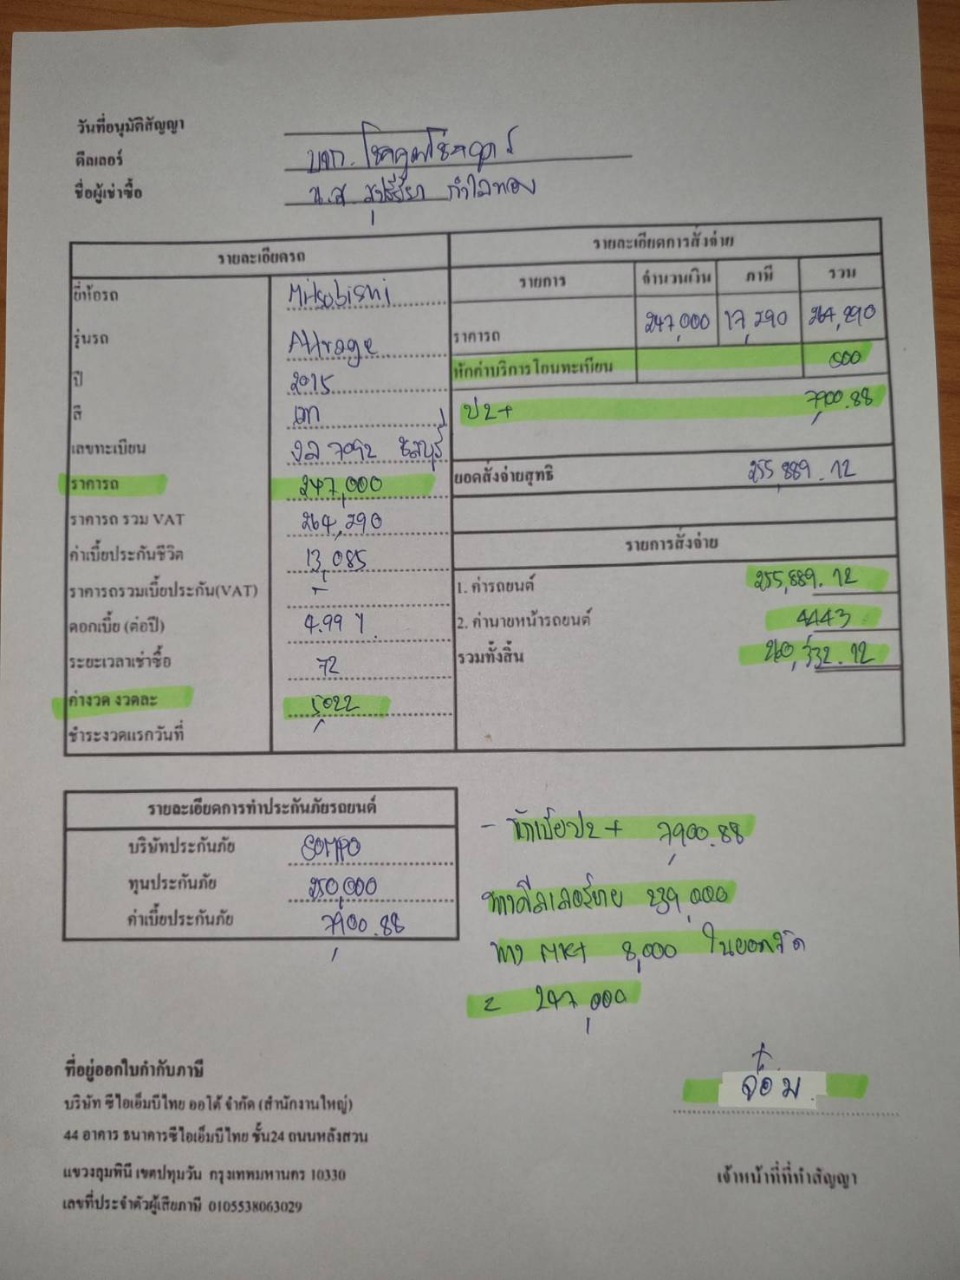 วันที่อนุมัติสัญญา
ดีลเลอร์ บจก. โชคคูณโชคคาร์
ชื่อผู้เช่าซื้อ น.ส. กำไลทอง
รายละเอียดรถ
ยี่ห้อรถ Mitsubishi
รุ่นรถ Attrage
ปี 2015
สี เทา
เลขทะเบียน 7092 ชลบุรี
ราคารถ 247,000
ราคารถ รวม VAT 264,290
ค่าเบี้ยประกันชีวิต 13,085
ราคารถรวมเบี้ยประกัน(VAT) -
ดอกเบี้ย (ต่อปี) 4.99 %
ระยะเวลาเช่าซื้อ 72
ค่างวด งวดละ 5,022
ชำระงวดแรกวันที่
รายละเอียดการสั่งจ่าย
รายการ จำนวนเงิน ภาษี รวม
ราคารถ 247,000 17,290 264,290
หักค่าบริการโอนทะเบียน 500
ป2+ 7,900.88
ยอดสั่งจ่ายสุทธิ 255,889.12
รายการสั่งจ่าย
1. ค่ารถยนต์ 255,889.12
2. ค่านายหน้ารถยนต์ 4443
รวมทั้งสิ้น 260,332.12
รายละเอียดการทำประกันภัยรถยนต์
บริษัทประกันภัย SOMPO
ทุนประกันภัย 250,000
ค่าเบี้ยประกันภัย 7,900.88
- หักเบี้ยป2+ 7,900.88
ทางดีลเลอร์ขาย 239,000
ทาง MKT 8,000 ในยอดจัด
= 247,000
จ๋อม
เจ้าหน้าที่ที่ทำสัญญา
ที่อยู่ออกใบกำกับภาษี
บริษัท ซีไอเอ็มบีไทย ออโต้ จำกัด (สำนักงานใหญ่)
44 อาคาร ธนาคารซีไอเอ็มบีไทย ชั้น24 ถนนหลังสวน
แขวงลุมพินี เขตปทุมวัน กรุงเทพมหานคร 10330
เลขที่ประจำตัวผู้เสียภาษี 0105538063029